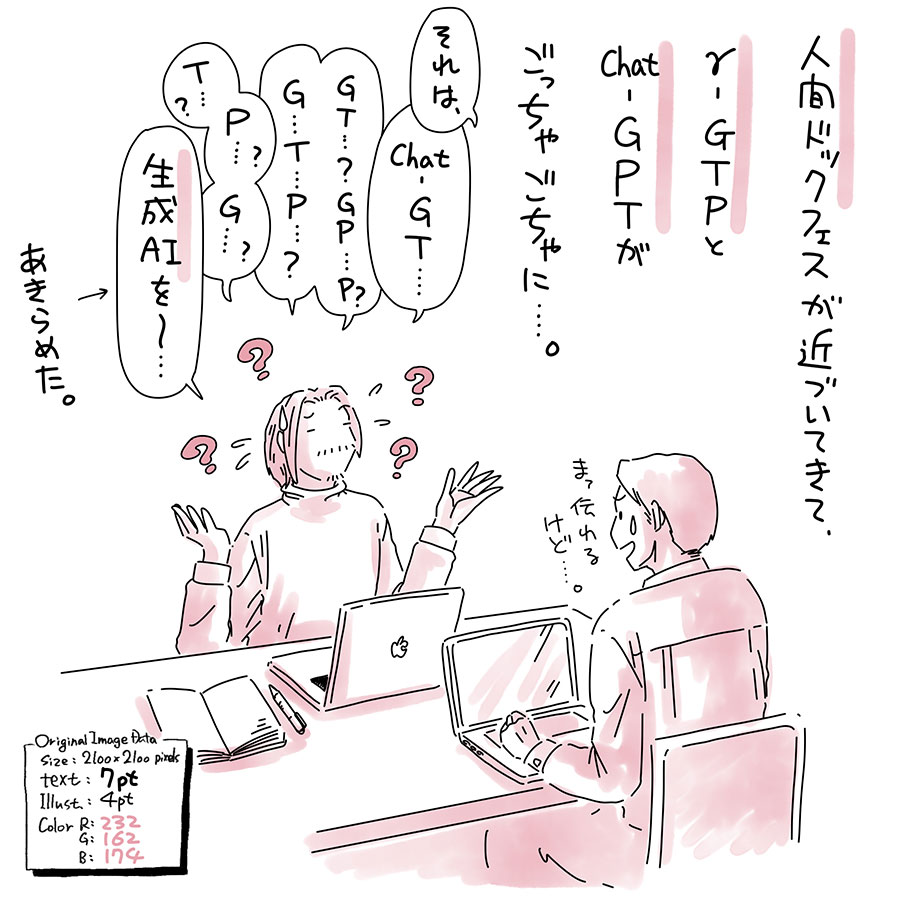 人間ドックフェスが近づいてきて、
γ-GTPと
Chat-GPTが
ごっちゃごちゃに……。
それは、
Chat-GT……
GT…？GP…P？
G…T…P…？
T…？
P…？
G…？
生成AIを〜…
→
あきらめた。
まぁ伝わる
けど…。
Original Image Data
Size: 2100×2100 pixels
text: 7pt
Illust.: 4pt
Color R: 232
G: 162
B: 174